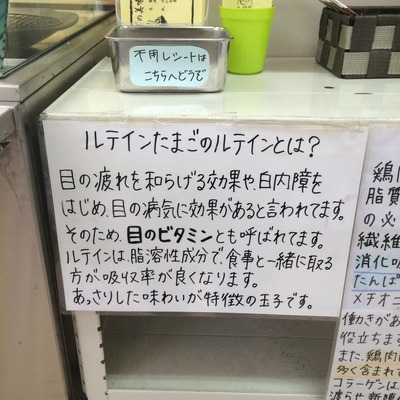 不用レシートは
こちらへどうぞ
ルテインたまごのルテインとは？
目の疲れを和らげる効果や、白内障を
はじめ、目の病気に効果があると言われてます。
そのため、目のビタミンとも呼ばれてます。
ルテインは、脂溶性成分で、食事と一緒に取る
方が吸収率が良くなります。
あっさりした味わいが特徴の玉子です。
鶏肉
脂質
の必
繊維
消化吸
たんぱ
メチオニ
働きがあ
役立ちます
また、鶏肉に
多く含まれて
コラーゲンは、